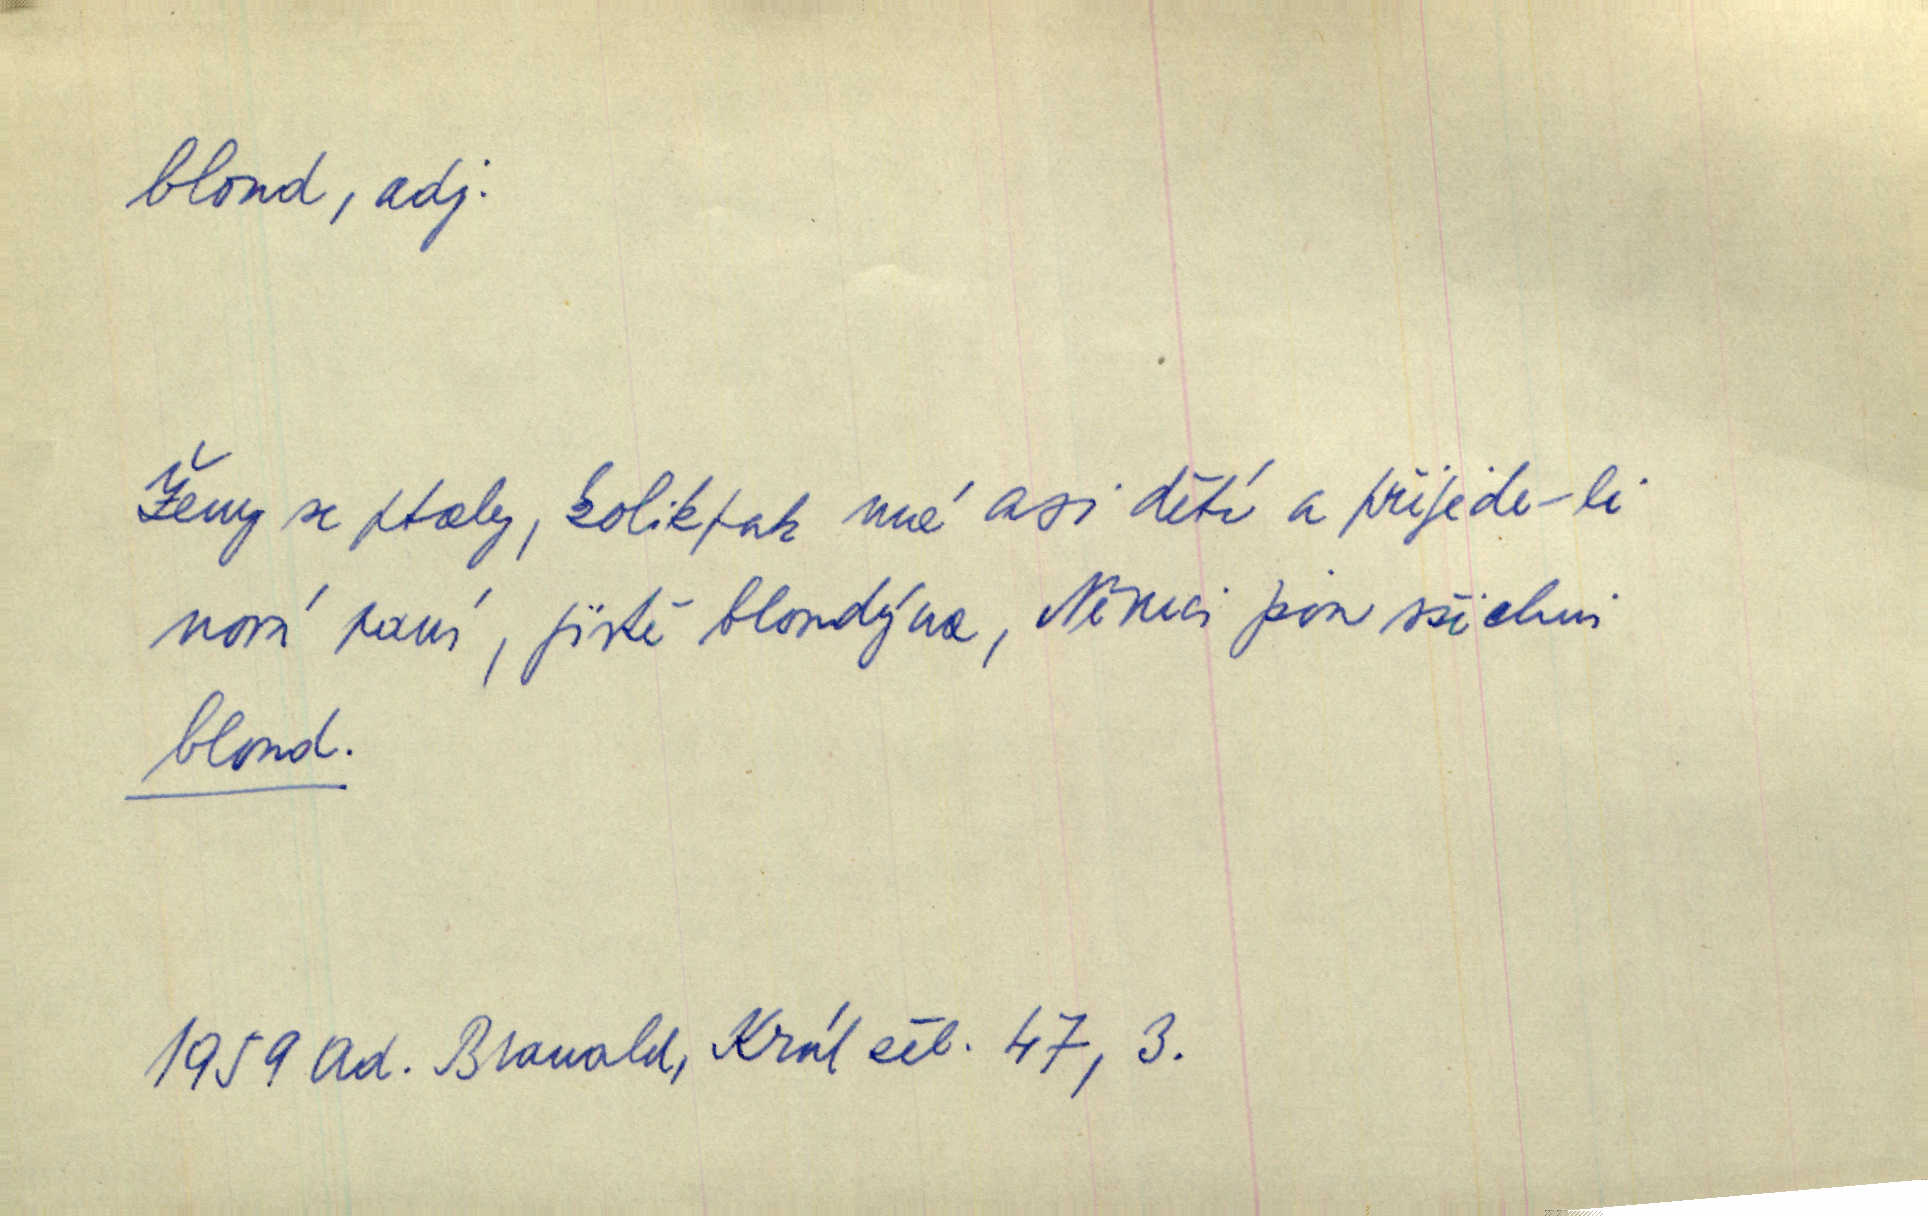 blond, adj.
Ženy se ptaly, kolikpak má asi dětí a přijede-li
nová paní, jistě blondýna, Němci jsou všichni
blond.
1959 Ad. Branald, Král 47, 3.